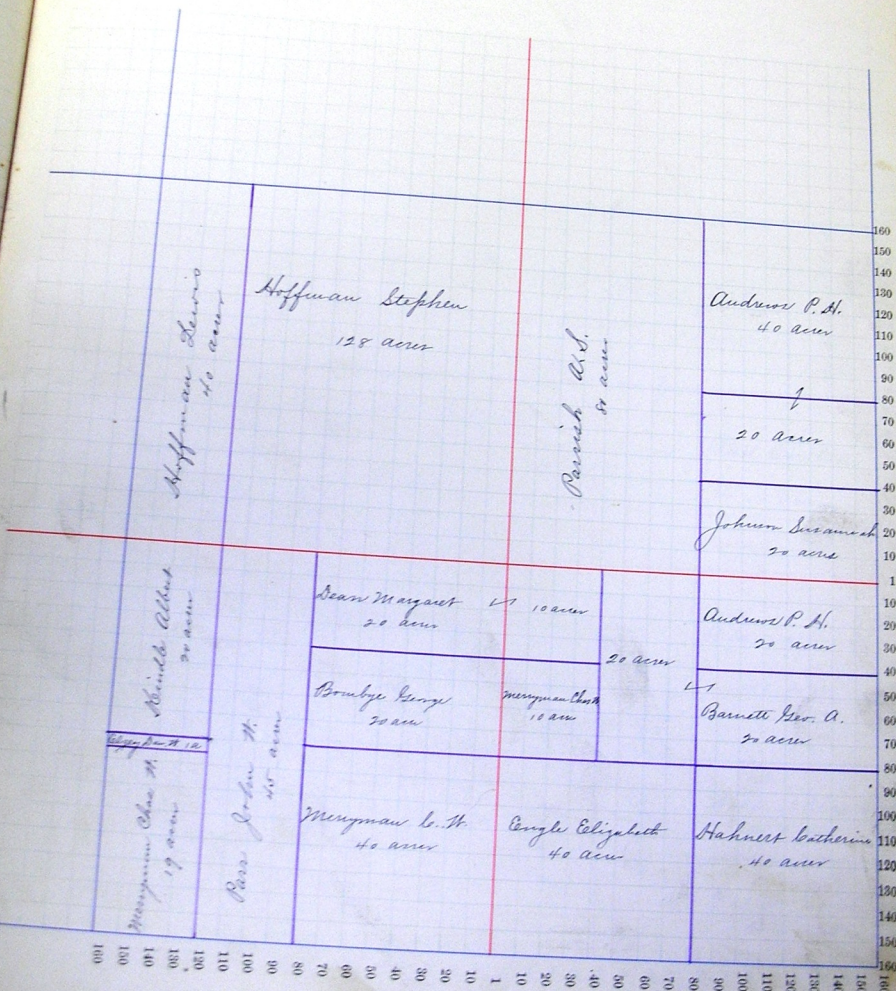 Hoffman Lewis
40 acres
Hoffman Stephen
128 acres
Parrish A.S.
80 acres
Andrews P. H.
40 acres
20 acres
Johnson Susannah
20 acres
Kindle Albert
20 acres
1 a
Merryman Chas W.
19 acres
Parr John W.
45 acres
Dean Margaret
20 acres
10 acres
Bombye George
20 acres
Merryman Chas W
10 acres
20 acres
Andrews P. H.
20 acres
Barnett Geo. A.
20 acres
Merryman C. W.
40 acres
Engle Elizabeth
40 acres
Hahnert Catherine
40 acres
160
150
140
130
120
110
100
90
80
70
60
50
40
30
20
10
1
10
20
30
40
50
60
70
80
90
100
110
120
130
140
150
160
160 150 140 130 120 110 100 90 80 70 60 50 40 30 20 10 1 10 20 30 40 50 60 70 80 90 100 110 120 130 140 150